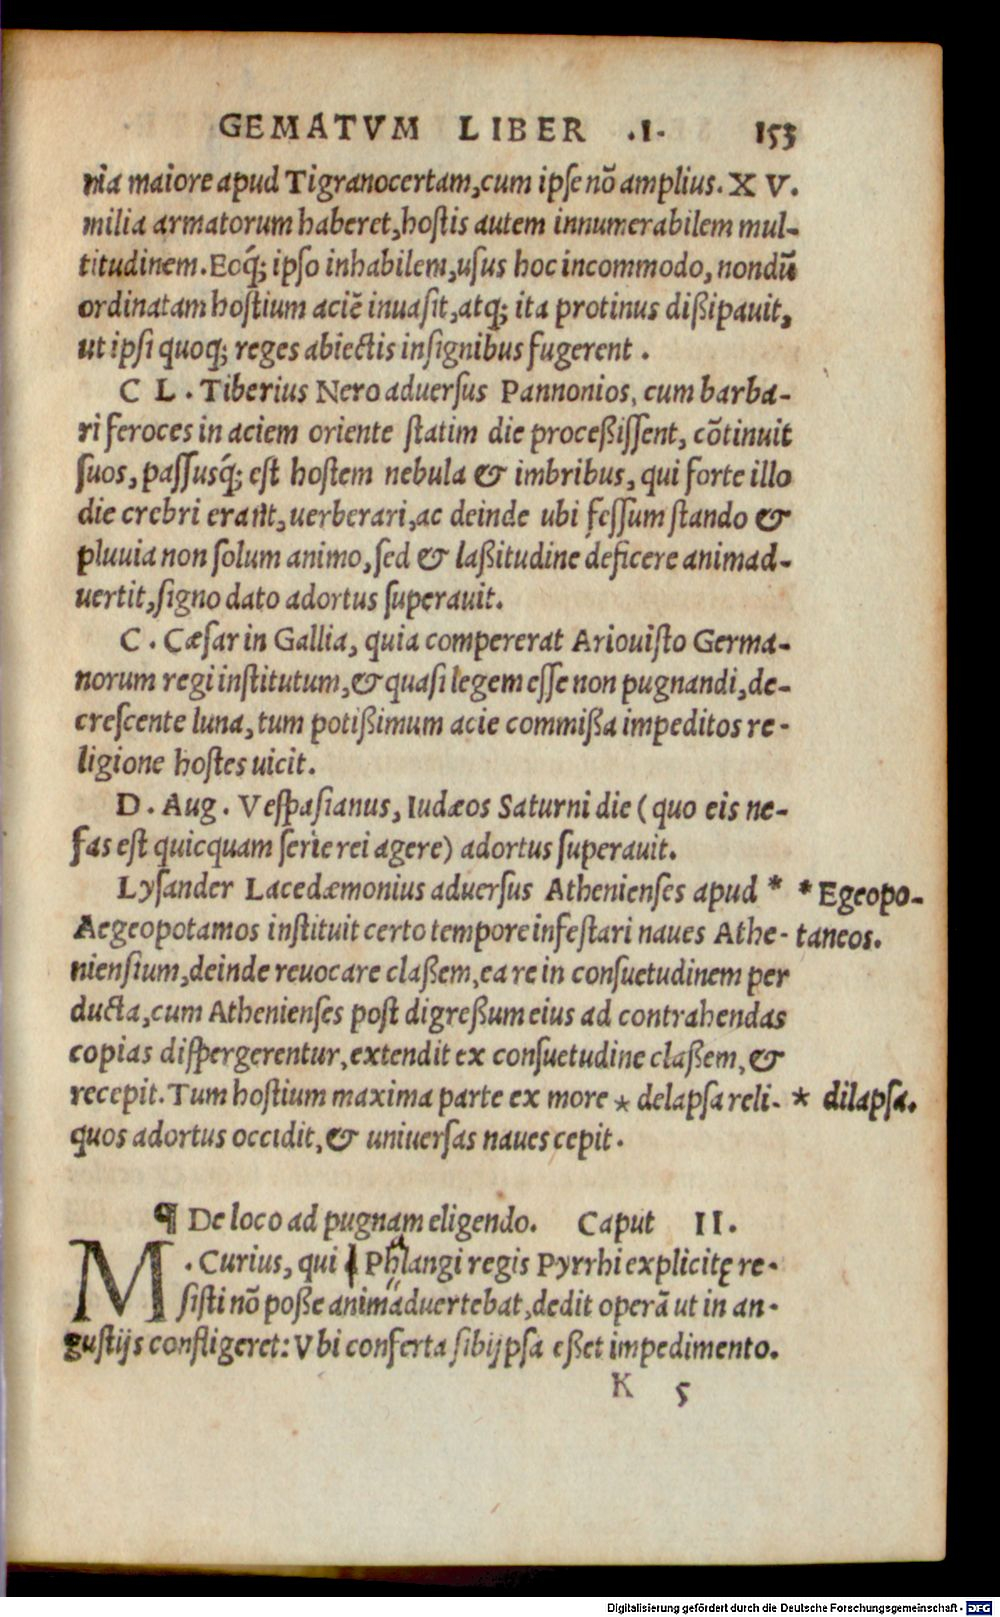 GEMATVM LIBER .I. 153
nia maiore apud Tigranocertam, cum ipse nõ amplius. X V.
milia armatorum haberet, hostis autem innumerabilem mul-
titudinem. Eoq́; ipso inhabilem, usus hoc incommodo, nondũ
ordinatam hostium aciẽ inuasit, atq; ita protinus dißipauit,
ut ipsi quoq; reges abiectis insignibus fugerent.
C L. Tiberius Nero aduersus Pannonios, cum barba-
ri feroces in aciem oriente statim die proceßissent, cõtinuit
suos, passusq́; est hostem nebula & imbribus, qui forte illo
die crebri erant, uerberari, ac deinde ubi fessum stando &
pluuia non solum animo, sed & laßitudine deficere animad-
uertit, signo dato adortus superauit.
C. Cæsar in Gallia, quia compererat Ariouisto Germa-
norum regi institutum, & quasi legem esse non pugnandi, de-
crescente luna, tum potißimum acie commißa impeditos re-
ligione hostes uicit.
D. Aug. Vespasianus, Iudæos Saturni die (quo eis ne-
fas est quicquam serie rei agere) adortus superauit.
Lysander Lacedæmonius aduersus Athenienses apud * * Egeopo-
Aegeopotamos instituit certo tempore infestari naues Athe- taneos.
niensium, deinde reuocare claßem, ea re in consuetudinem per
ducta, cum Athenienses post digreßum eius ad contrahendas
copias dispergerentur, extendit ex consuetudine claßem, &
recepit. Tum hostium maxima parte ex more * delapsa reli- * dilapsa.
quos adortus occidit, & uniuersas naues cepit.
¶ De loco ad pugnam eligendo. Caput II.
M. Curius, qui Phlangi regis Pyrrhi explicitę re-
sisti nõ poße animaduertebat, dedit operã ut in an-
gustijs confligeret: Vbi conferta sibijpsa eßet impedimento.
K 5
Digitalisierung gefördert durch die Deutsche Forschungsgemeinschaft - DFG